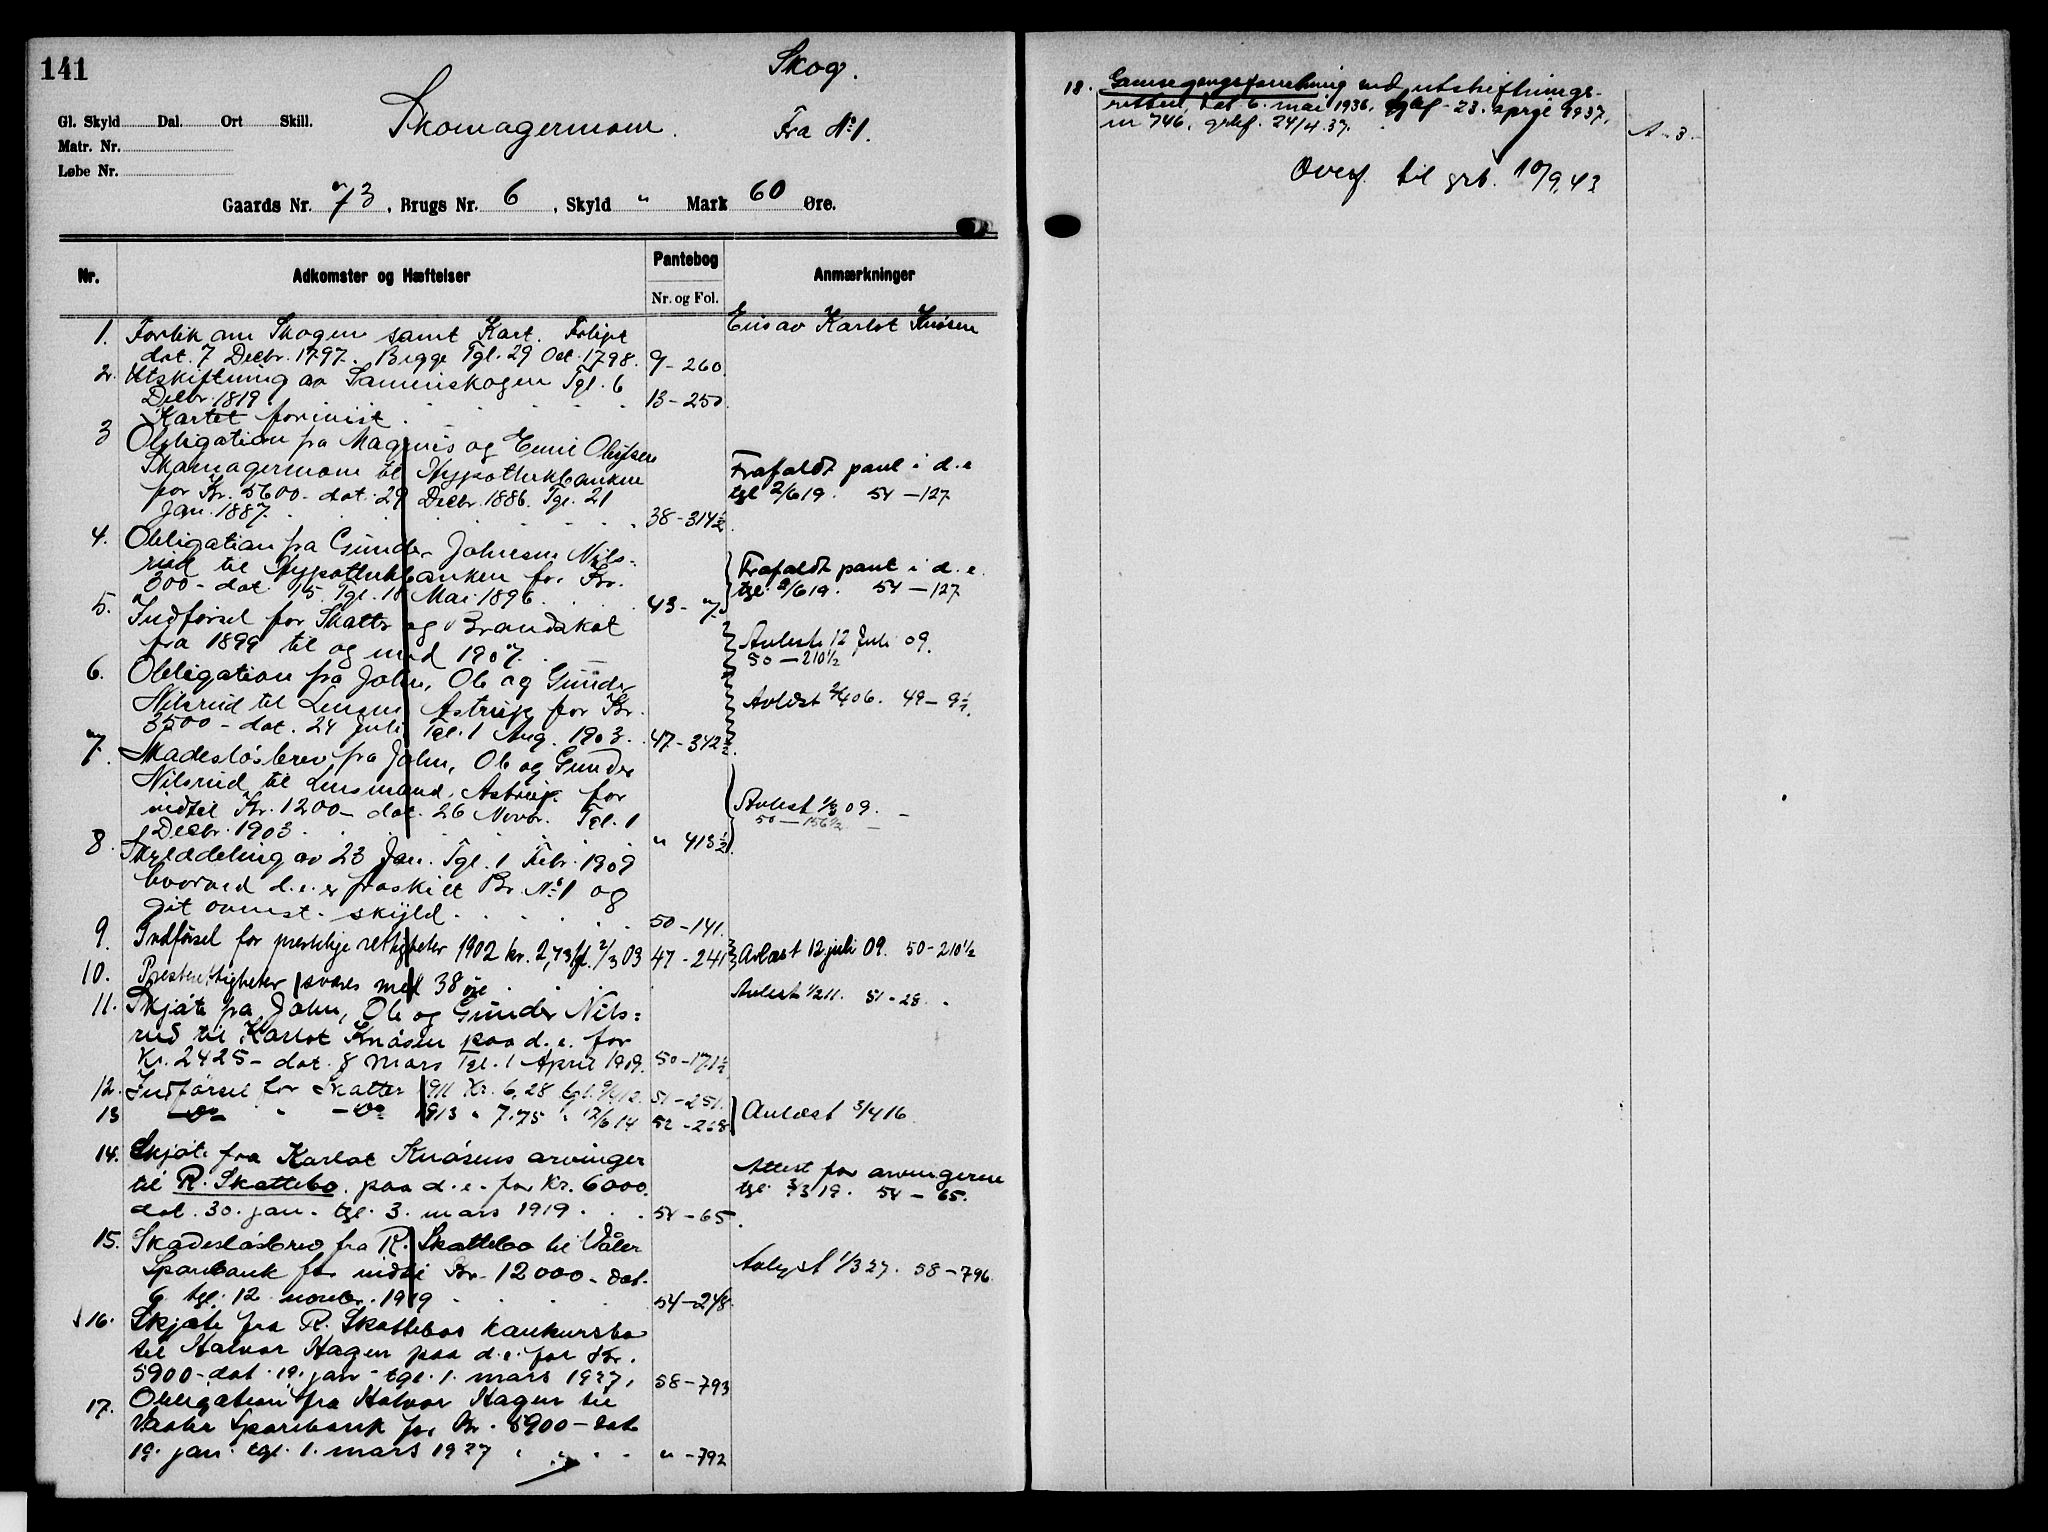 141
Skog.
Gl. Skyld Dal. Ort Skill.
Skomagermom.
Fra No 1.
Matr. Nr.
Løbe Nr.
Gaards Nr. 73, Brugs Nr. 6, Skyld " Mark 60 Øre.
Nr. Adkomster og Hæftelser Pantebog Anmærkninger
Nr. og Fol.
Eies av Karlot Knøsen
1. Forlik om Skogen samt Kart.
dat. 7 Decbr. 1797. Begge Tgl. 29 Oct. 1798. 9-260.
2. Utskiftning av Sameieskogen Tgl. 6
Decbr. 1819. 13-250.
Kartet forevist.
3 Obligation fra Magnus og Emil Olufsen
Skomagermom til Hypothekbanken Frafaldt pant i d.e
for Kr. 5600- dat. 29 Decbr. 1886. Tgl. 21 tgl 2/6 19. 54-127
Jan. 1887. 38-314½.
4. Obligation fra Gunder Johnsen Nils=
rud til Hypothekbanken for Kr. Frafaldt pant i d.e.
300- dat. 15. Tgl. 18 Mai 1896. 43-7. tgl. 2/6 19. 54-127
5. Indførsel for Skatter og Brandskat
fra 1899 til og med 1907. Avlæst 12 Juli 09.
50-210½
6. Obligation fra John, Ole og Gunder
Nilsrud til Lensm. Astrup for Kr. Avlæst 2/4 06. 49-9½.
3500- dat. 24 Juli Tgl. 1 Aug. 1903. 47-342½.
7. Skadesløsbrev fra John, Ole og Gunder
Nilsrud til Lensmand Astrup for
indtil Kr. 1200- dat. 26 Novbr. Tgl. 1 Avlæst 1/3 09.
Decbr. 1903. " 413½. 50-156½
8. Skylddeling av 23 Jan. Tgl. 1 Febr. 1909
hvorved d.e. er fraskilt Br. No 1 og
git ovenst. skyld. 50-141.
9. Indførsel for prestelige rettigheter 1902 kr. 2,73 tgl. 2/3 03 47-241 Avlæst 12 juli 09. 50-210½
10. Presterettigheter svares med 38 øre Avlæst 1/2 11. 51-28.
11. Skjøte fra John, Ole og Gunder Nils=
rud til Karlot Knøsen paa d.e. for
Kr. 2425- dat. 8 Mars Tgl. 1 April 1909. 50-171½
12. Indførsel for Skatter 1911 Kr. 6,28 tgl. 51-251.
13 -do- " -do- 1913 " 7.75 " 12/6 14 52-268 Avlæst 3/4 16.
14. Skjøte fra Karlot Knøsens arvinger
til R. Skattebo paa d.e. for Kr. 6000. Attest for arvingerne
dat. 30. jan. tgl. 3. mars 1919. 54-65. tgl. 3/3 19. 54-65.
15. Skadesløsbrev fra R. Skattebo til Våler
Sparebank for indtil Kr. 12000- dat. Avlyst 1/3 27. 58-796.
6. tgl. 12. novbr. 1919 54-248.
16. Skjøte fra R. Skattebos konkursbo
til Halvor Hagen paa d.e. for Kr.
5900- dat. 19. jan- tgl. 1. mars 1927. 58-793
17. Obligation fra Halvor Hagen til
Vaaler Sparebank for Kr. 5900- dat
19. jan. tgl. 1. mars 1927 " -792
18. Grensegangsforretning ved utskiftnings-
retten, dat 6. mai 1936, tglf. 23. april 1937,
nr 746, gebf. 24/4.37. A-3.
Overf. til grb. 10/9.43